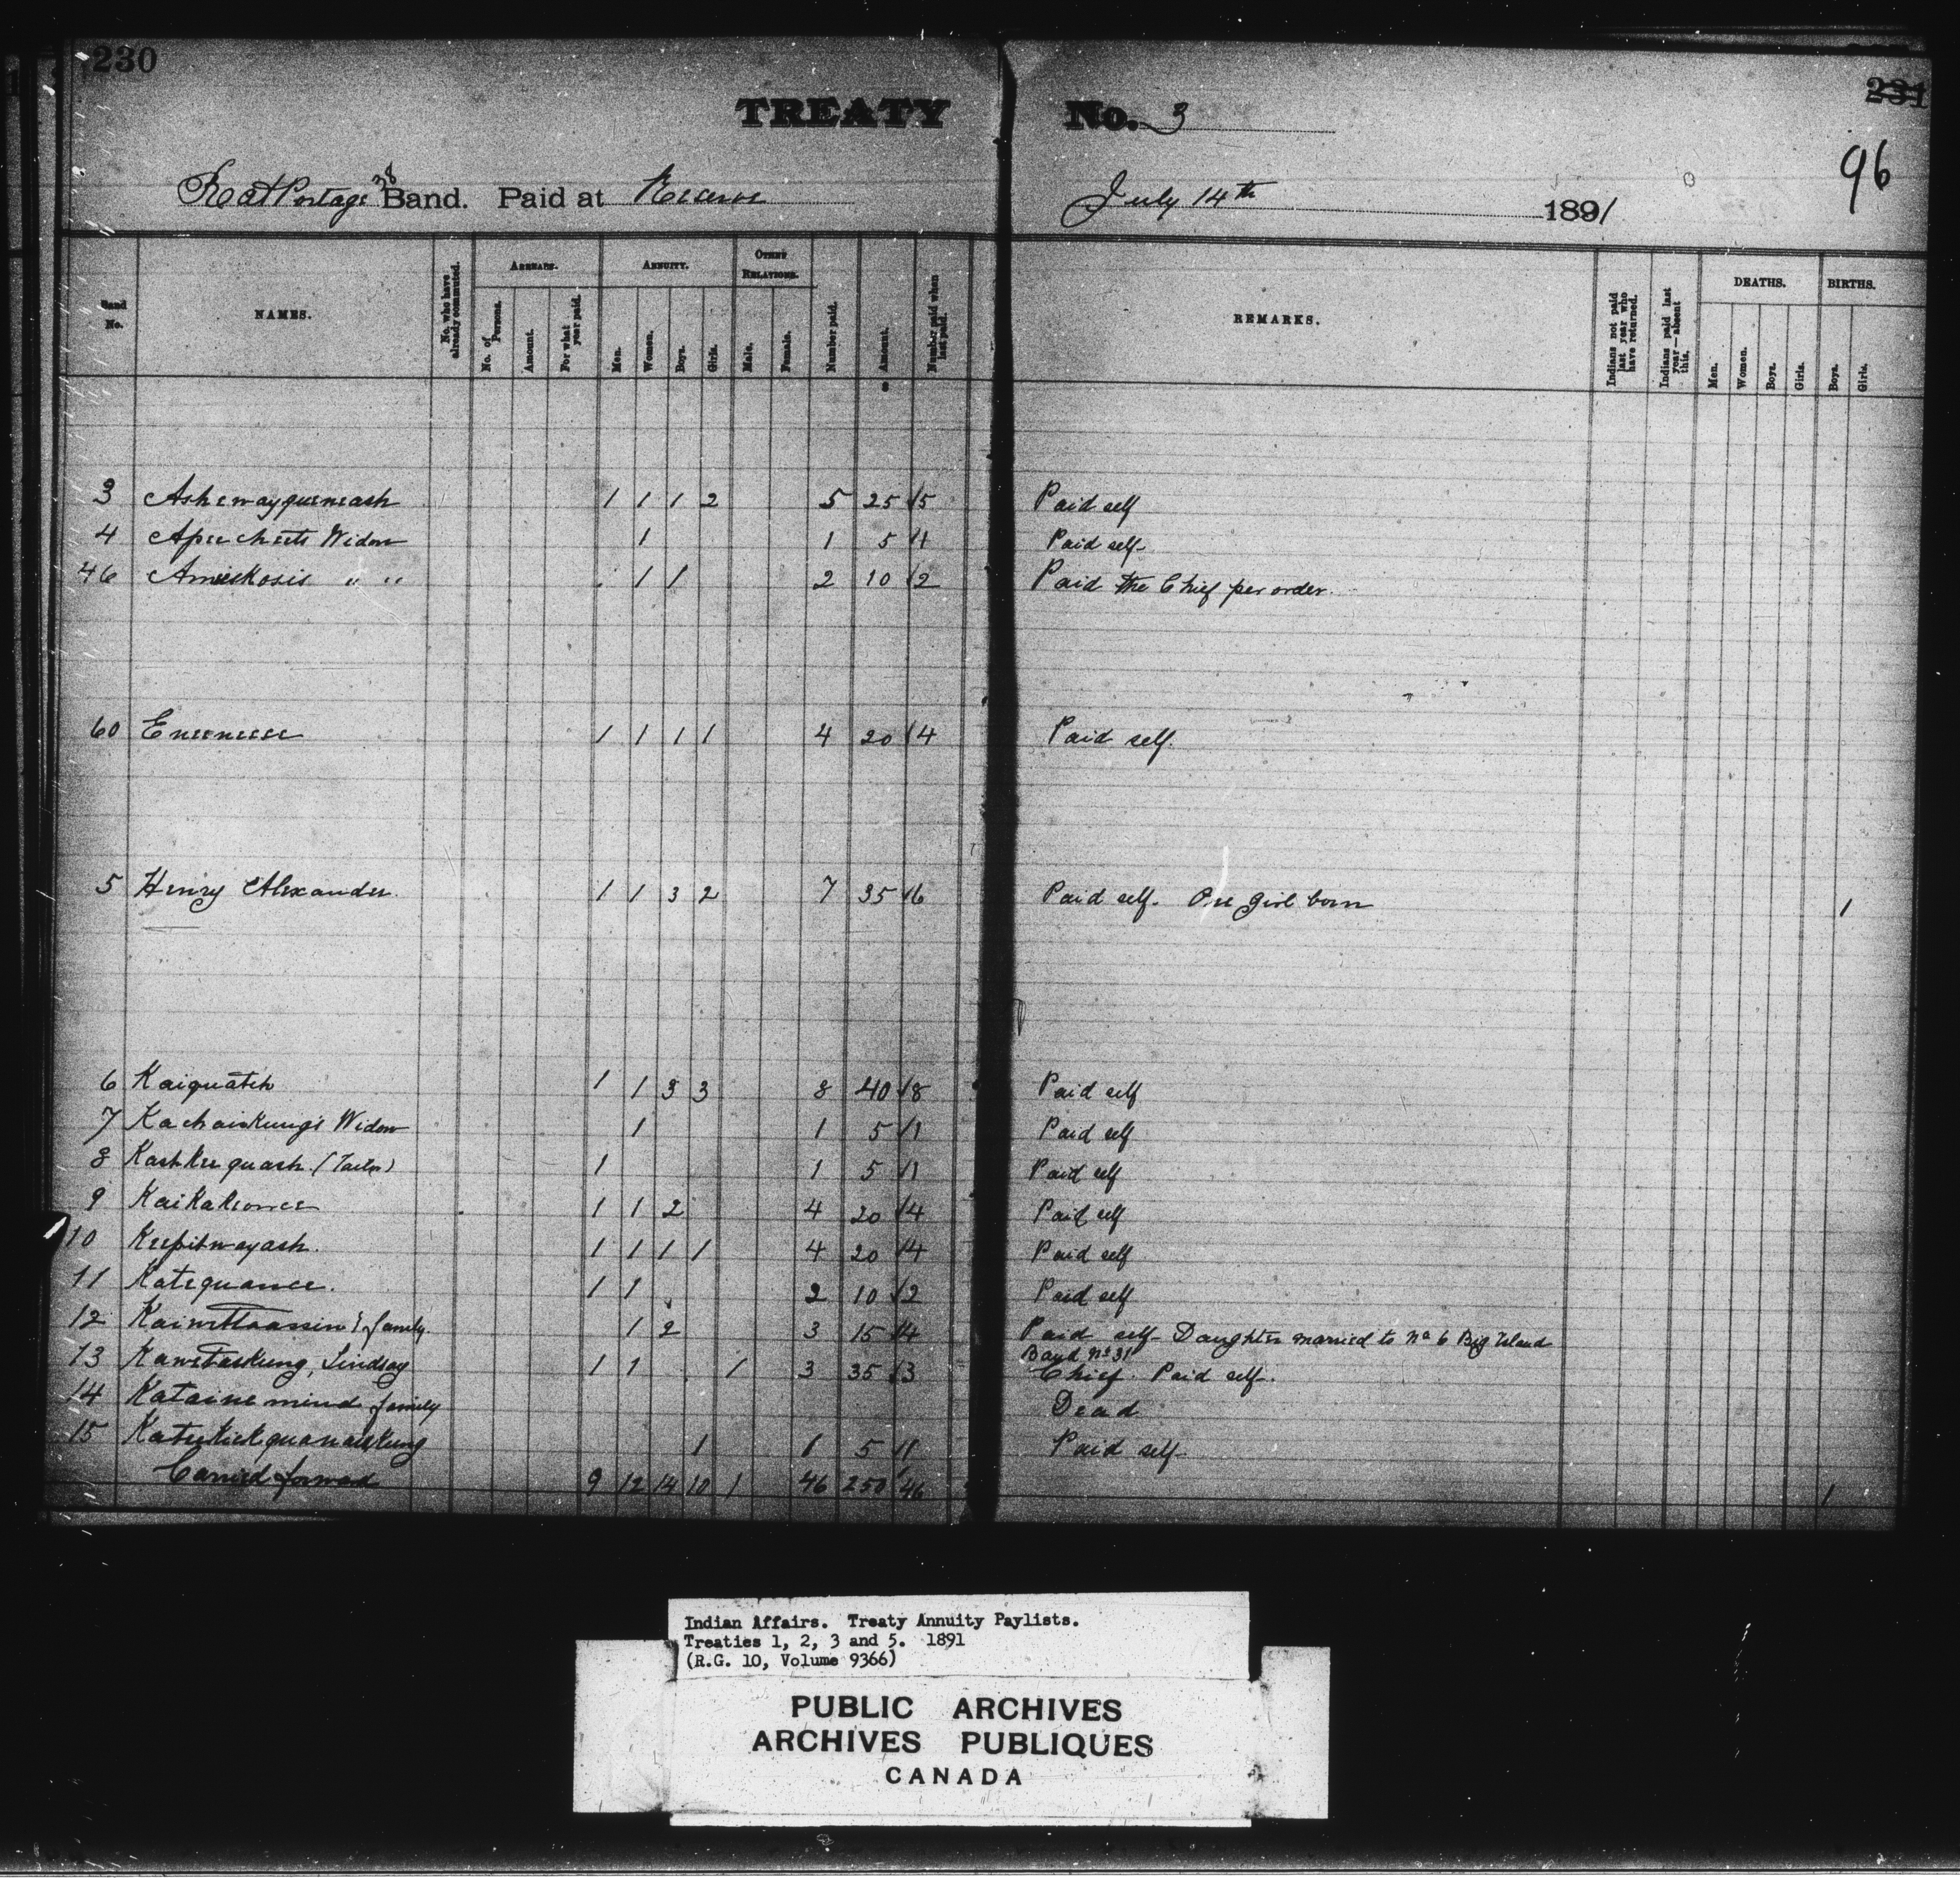 230
231
96
TREATY No. 3
Rat Portage 38 Band. Paid at Reserve July 14th 1891
Band No. NAMES. No. who have already commuted. ARREARS. No. of Persons. Amount. For what year paid. ANNUITY. Men. Women. Boys. Girls. OTHER RELATIONS. Male. Female. Number paid. $ Amount. Number paid when last paid. REMARKS. Indians not paid last year who have returned. Indians paid last year—absent this. DEATHS. Men. Women. Boys. Girls. BIRTHS. Boys. Girls.
3 Ashewayqueneash 1 1 1 2 5 25 5 Paid self
4 Apeecheets Widow 1 1 5 1 Paid self
46 Amiskosis " " 1 1 2 10 2 Paid the Chief per order.
60 Eneeneese 1 1 1 1 4 20 4 Paid self.
5 Henry Alexander. 1 1 3 2 7 35 6 Paid self. One girl born 1
6 Kaiquatch 1 1 3 3 8 40 8 Paid self
7 Kachaiskung's Widow 1 1 5 1 Paid self
8 Kashkeequash (Tailor) 1 1 5 1 Paid self
9 Kaikakeonce 1 1 2 4 20 4 Paid self
10 Keepitwayash. 1 1 1 1 4 20 4 Paid self
11 Katequance. 1 1 2 10 2 Paid self
12 family 1 2 3 15 4 Paid self Daughter married to No 6 Big Island
Band No 31
13 Kawetaskung, Lindsay 1 1 1 3 35 3 Chief. Paid self.
14 Katainemind family Dead
15 1 1 5 1 Paid self
Carried forward 9 12 14 10 1 46 250 46 1
Indian Affairs. Treaty Annuity Paylists.
Treaties 1, 2, 3 and 5. 1891
(R.G. 10, Volume 9366)
PUBLIC ARCHIVES
ARCHIVES PUBLIQUES
CANADA